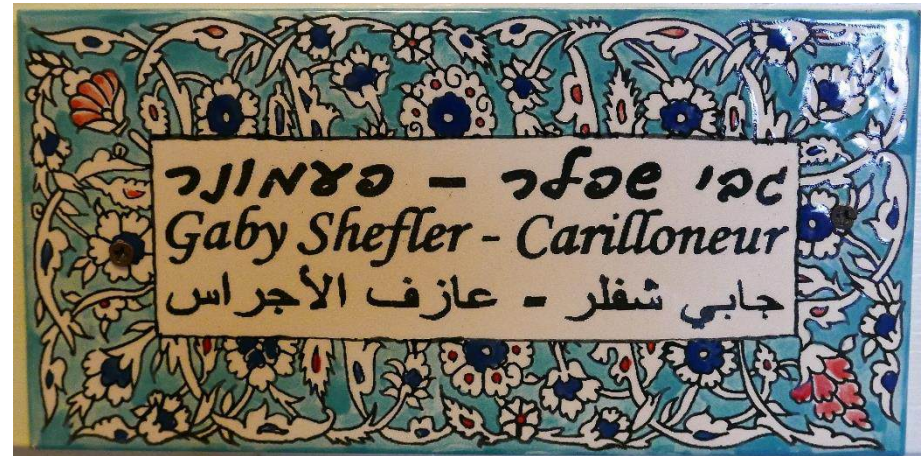 גבי שפלר - פעמונר
Gaby Shefler - Carilloneur
جابي شفلر - عازف الأجراس